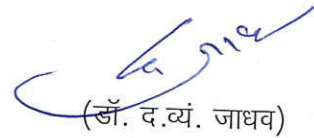 (डॉ. द.व्यं. जाधव)